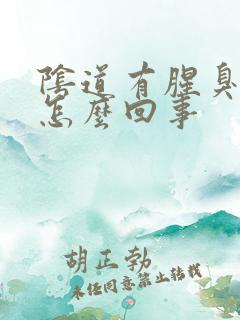 陰道有腥臭
怎麼回事
胡正勃
未经同意禁止转载